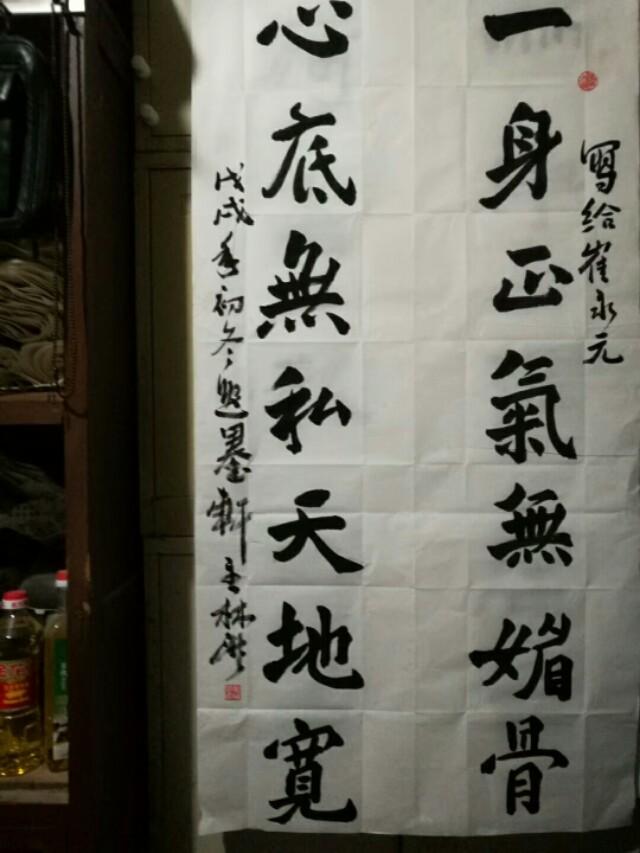 寫給崔永元
一身正氣無媚骨
心底無私天地寬
戊戌年初冬逸墨軒主林